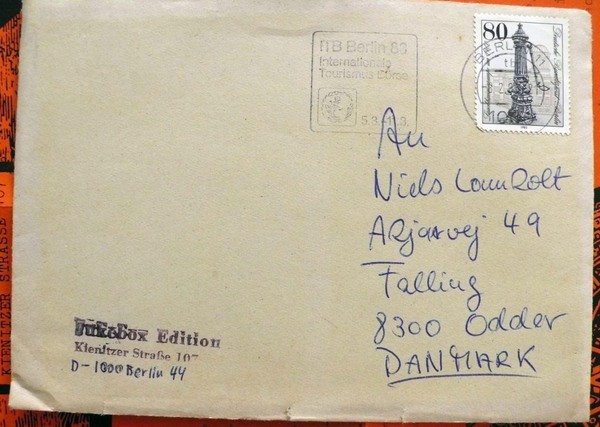 80
ITB Berlin 83
Internationale
Tourismus Börse
5.3.
BERLIN 11
An
Niels Lomholt
Aljarvej 49
Falling
8300 Odder
DANMARK
JukeBox Edition
Kienitzer Straße 107
D-1000 Berlin 44
KIENITZER STRASSE 107